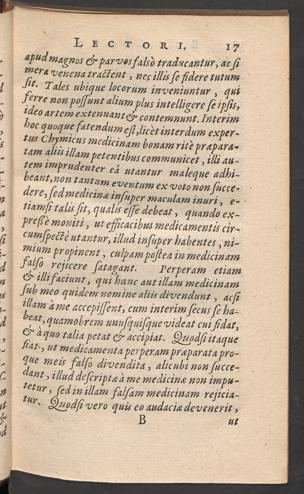 LECTORI. 17
apud magnos & parvos falsò traducantur, ac si
mera venena tractent, nec illis se fidere tutum
sit. Tales ubique locorum inveniuntur, qui
ferre non possunt alium plus intelligere se ipsis,
ideo artem extenuant & contemnunt. Interim
hoc quoque fatendum est, licèt interdum exper-
tus Chymicus medicinam bonam ritè præpara-
tam aliis illam petentibus communicet, illi au-
tem imprudenter eâ utantur maleque adhi-
beant, non tantum eventum ex voto non succe-
dere, sed medicinæ insuper maculam inuri, e-
tiamsi talis sit, qualis esse debeat, quando ex-
pressè moniti, ut efficacibus medicamentis cir-
cumspectè utantur, illud insuper habentes, ni-
mium propinent, culpam postea in medicinam
falso rejicere satagant. Perperam etiam
& illi faciunt, qui hanc aut illam medicinam
sub meo quidem nomine aliis divendunt, acsi
illam à me accepissent, cum interim secus se ha-
beat, quamobrem unusquisque videat cui fidat,
& à quo talia petat & accipiat. Quodsi itaque
fiat, ut medicamenta perperam præparata pro-
que meis falso divendita, alicubi non succe-
dant, illud descriptæ à me medicinæ non impu-
tetur, sed in illam falsam medicinam rejicia-
tur. Quodsi vero quis eo audaciæ devenerit,
B ut